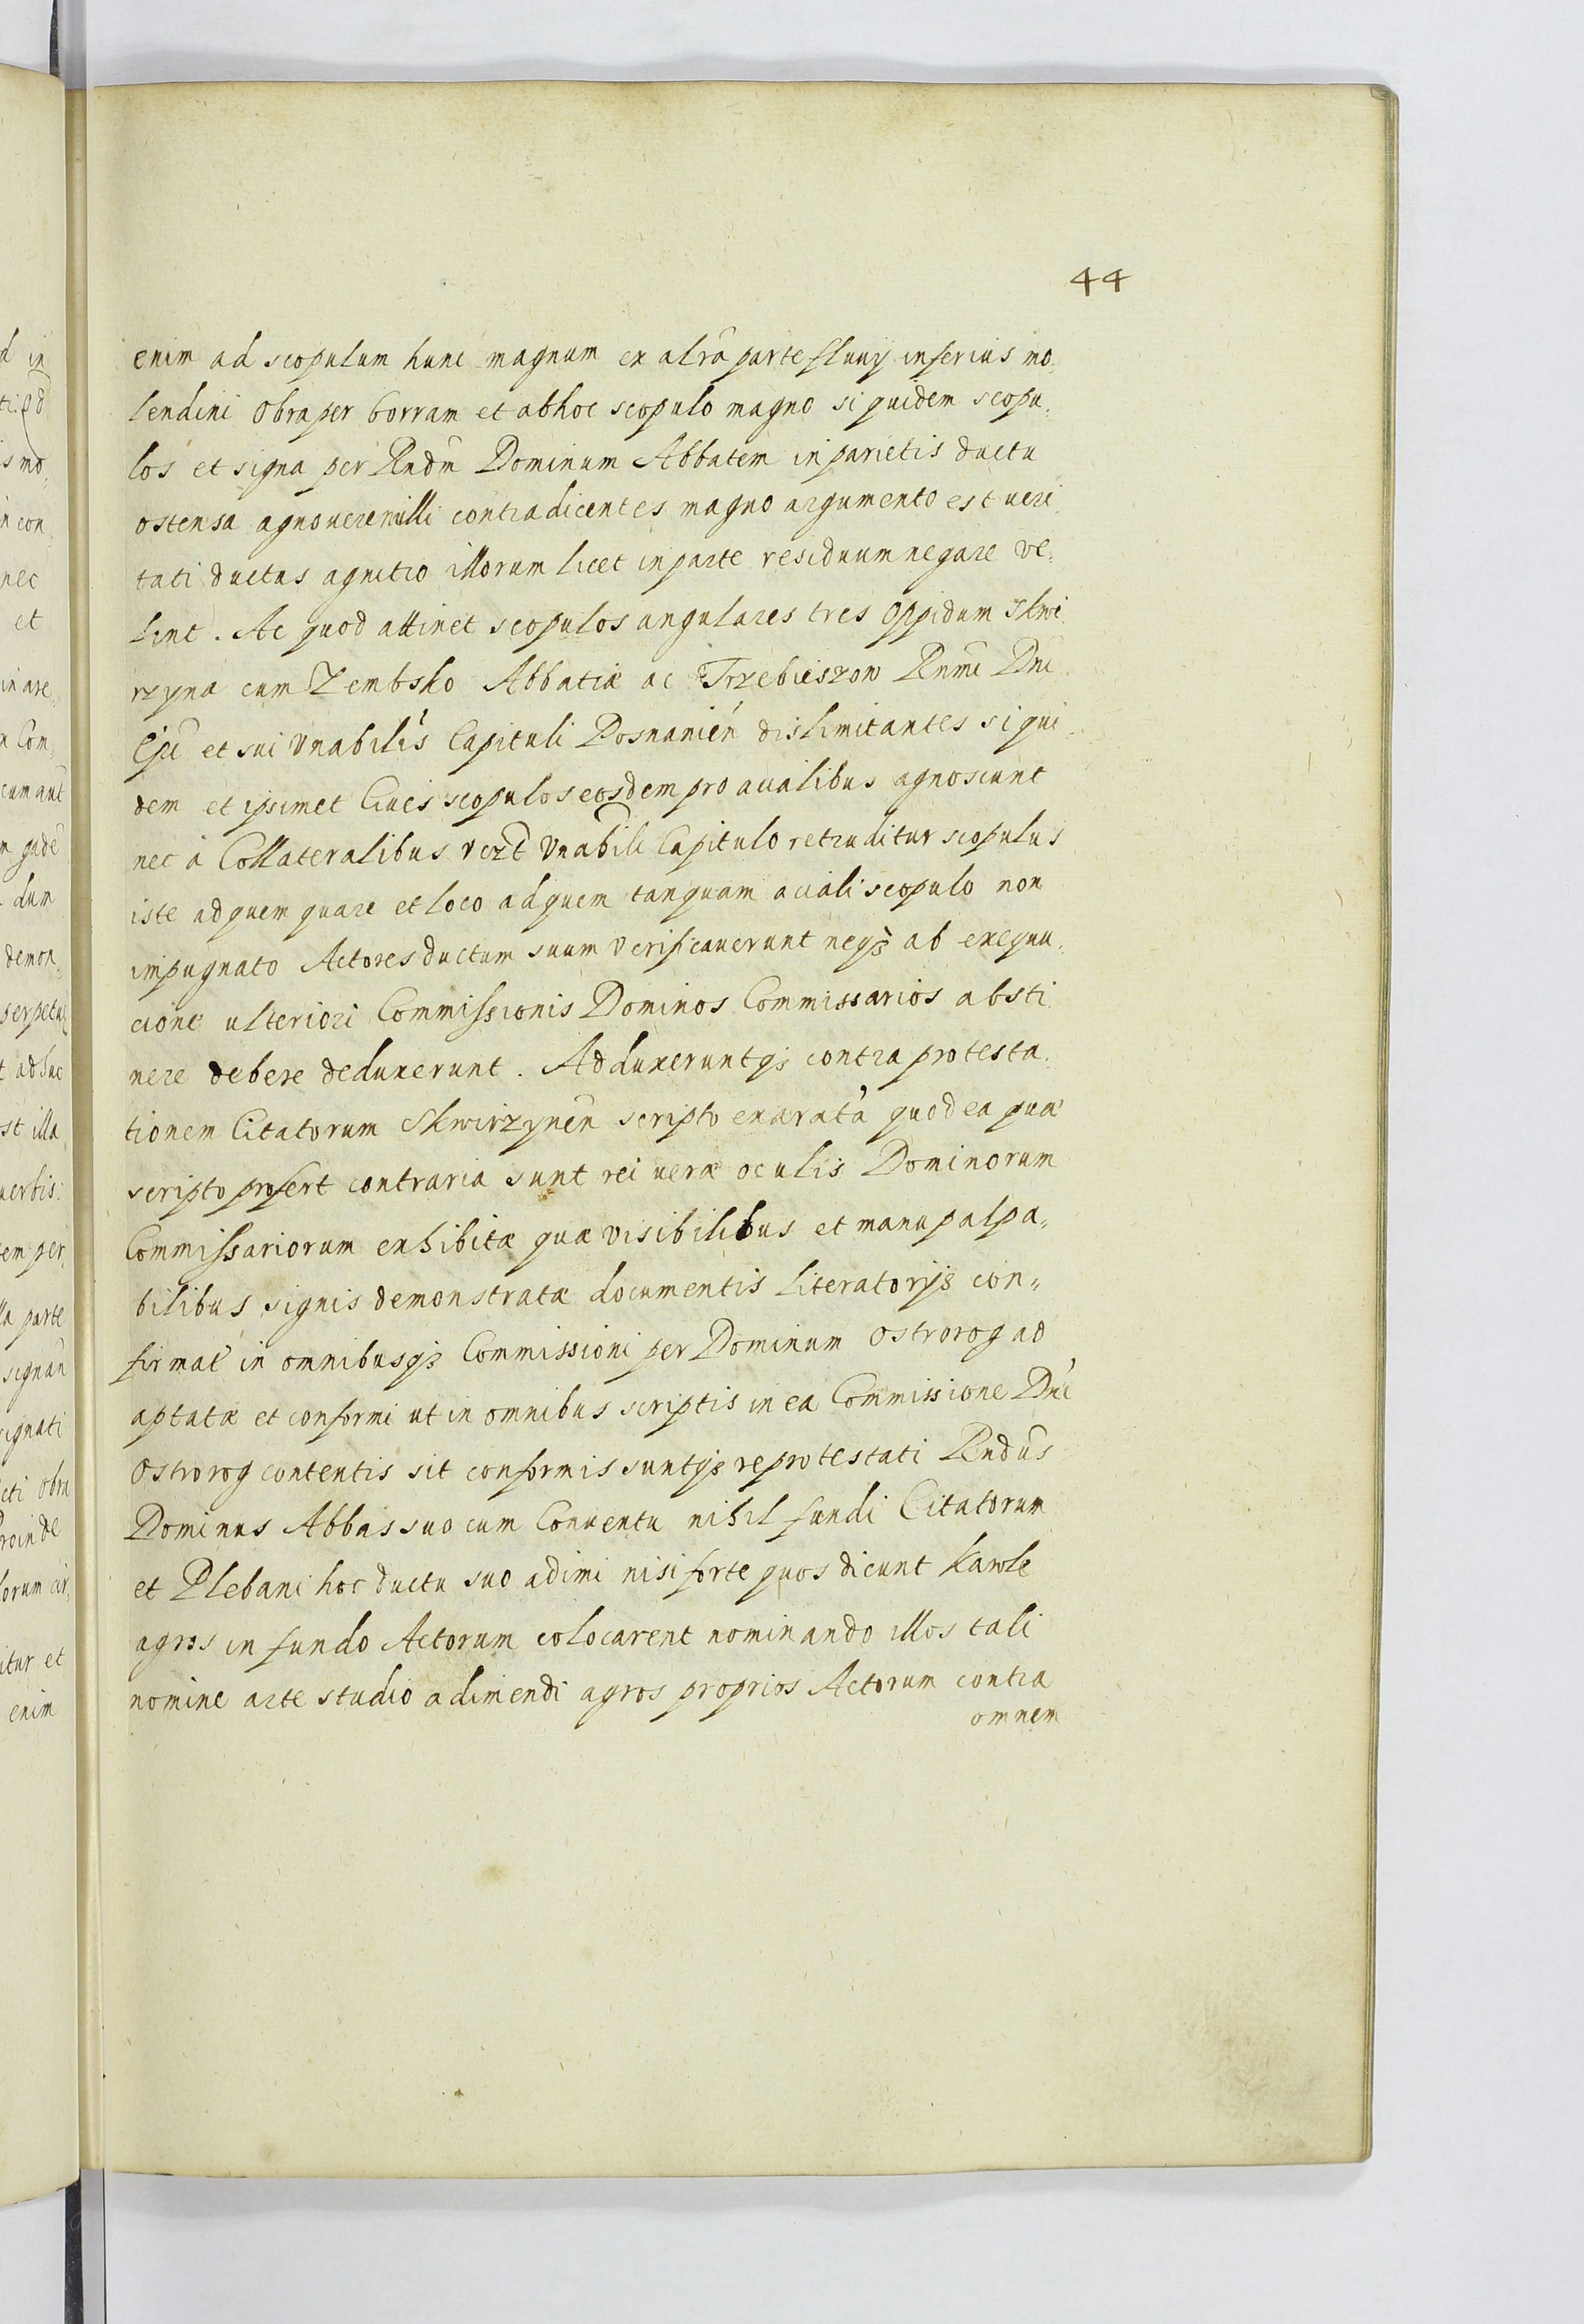 44
enim ad scopulum hunc magnum ex alrã parte fluuy inferius mo„
lendini Obra per borram et ab hoc scopulo magno si quidem scopu„
los et signa per Rndm̃ Dominum Abbatem in parietis ductu
ostensa agnouere nulli contradicentes magno argumento est ueri„
tati ductus agnitio illorum licet in parte residuum negare ve„
lint. Ac quod attinet scopulos angulares tres Oppidum Skwi„
rzyna cum Zembsko Abbatiæ ac Trzebieszow Rnmi Dni
Epĩ et sui Vnabilis Capituli Posnanień dislimitantes si qui„
dem et ipsimet Ciues scopulos eosdem pro aualibus agnoscunt
nec à Collateralibus Vnabili Capitulo retruditur scopulus
iste ad quem quare et loco ad quem tanquam aciali scopulo non
impugnato Actores ductum suum verificauerunt neqз ab exequu„
cione ulteriori Commissionis Dominos Commissarios absti„
nere debere deduxerunt. Adduxeruntqз contra protesta„
tionem Citatorum Skwirzynen̄ scripto exaratã quod ea quæ
scripto profert contraria sunt rei ueræ oculis Dominorum
Commissariorum exhibitæ quæ visibilibus et manu palpa„
bilibus signis demonstratæ documentis literatorijs con„
firmat̃ in omnibusqз Commissioni per Dominum Ostrorog ad
aptatæ et conformi ut in omnibus scriptis in ea Commissione Dni
Ostrorog contentis sit conformis suntqз reprotestati Rndus
Dominus Abbas suo cum Conuentu nihil fundi Citatorum
et Plebani hoc ductu suo adimi nisi forte quos dicunt Kawle
agros in fundo Actorum colocarent nominando illos tali
nomine arte studio adimendi agros proprios Actorum contra
omnem
d in
s mo„
in con„
nec
et
in are„
n Com„
cum aut
dum
demon„
perpetu
t adhuc
st illa
uerbis
em per„
la parte
signan
ignati
cti Obra
roinde
lorum cir„
itur et
enim